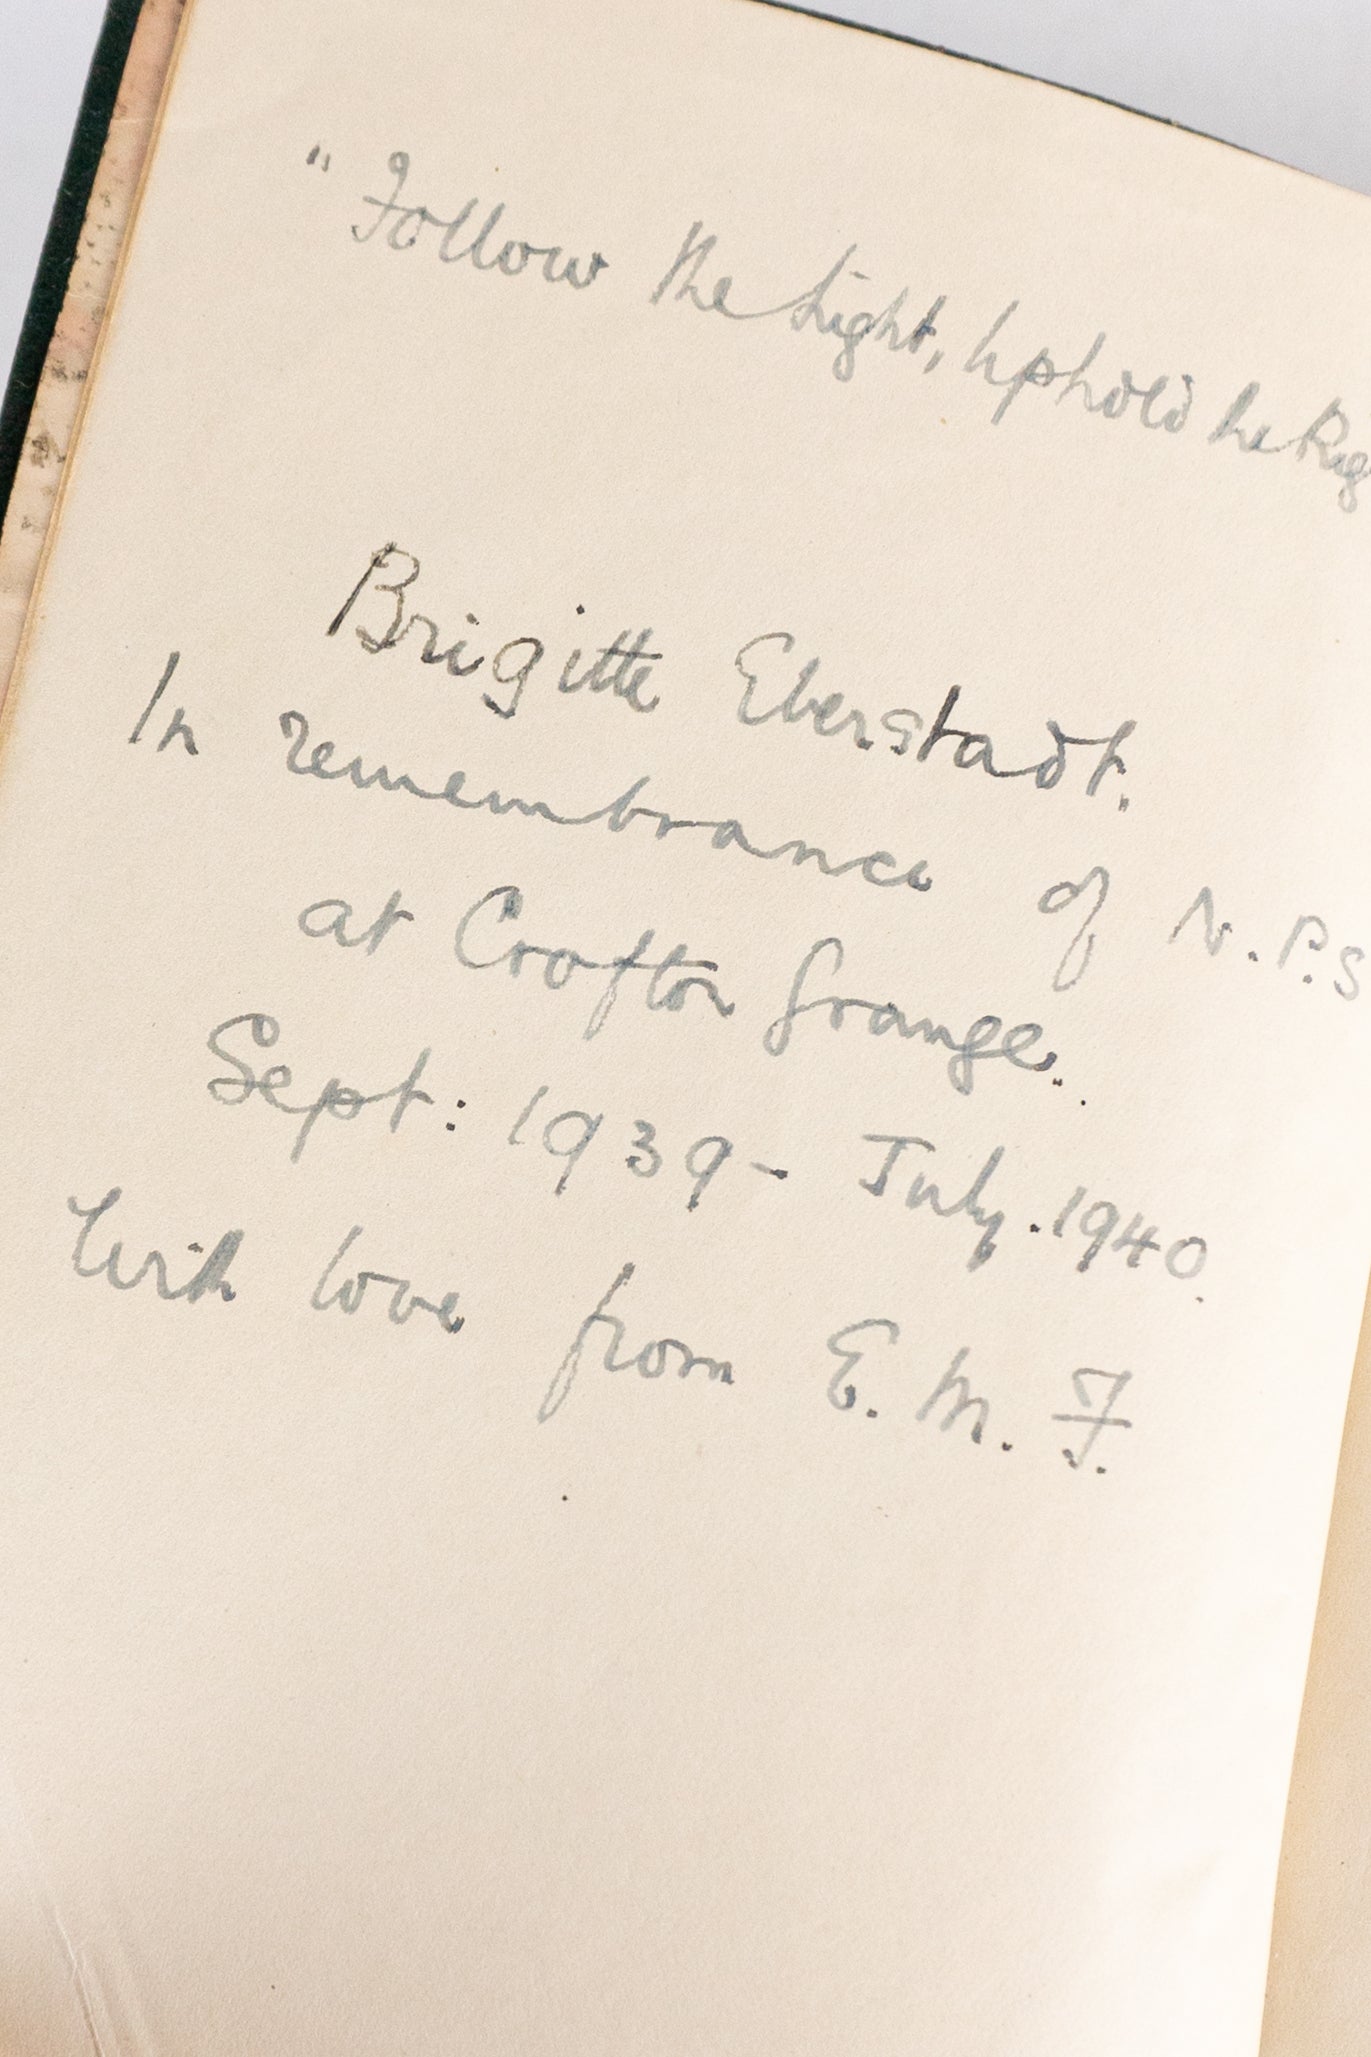 "Follow the Light, Uphold the Rig
Brigitte Eberstadt.
In remembrance of N.P.S
at Crofton Grange.
Sept: 1939 - July. 1940.
With love from E. M. F.